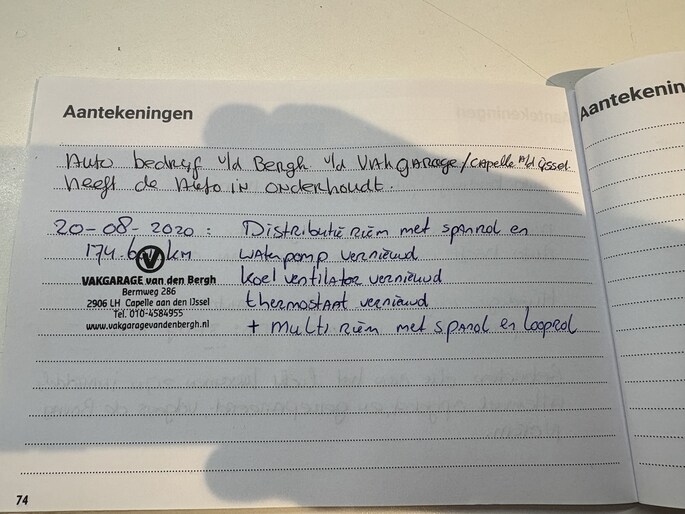 Aantekeningen
Auto bedrijf v/d Bergh v/d VAKgarage/Capelle a/d ijssel
heeft de Auto in onderhoudt.
20-08-2020: Distributie riem met spanrol en
174. km waterpomp vernieuwd
VAKGARAGE van den Bergh
Bermweg 286
2906 LH Capelle aan den IJssel
Tel. 010-4584955
www.vakgaragevandenbergh.nl
koel ventilator vernieuwd
thermostaat vernieuwd
+ multi riem met spanrol en looprol
74
Aantekenin